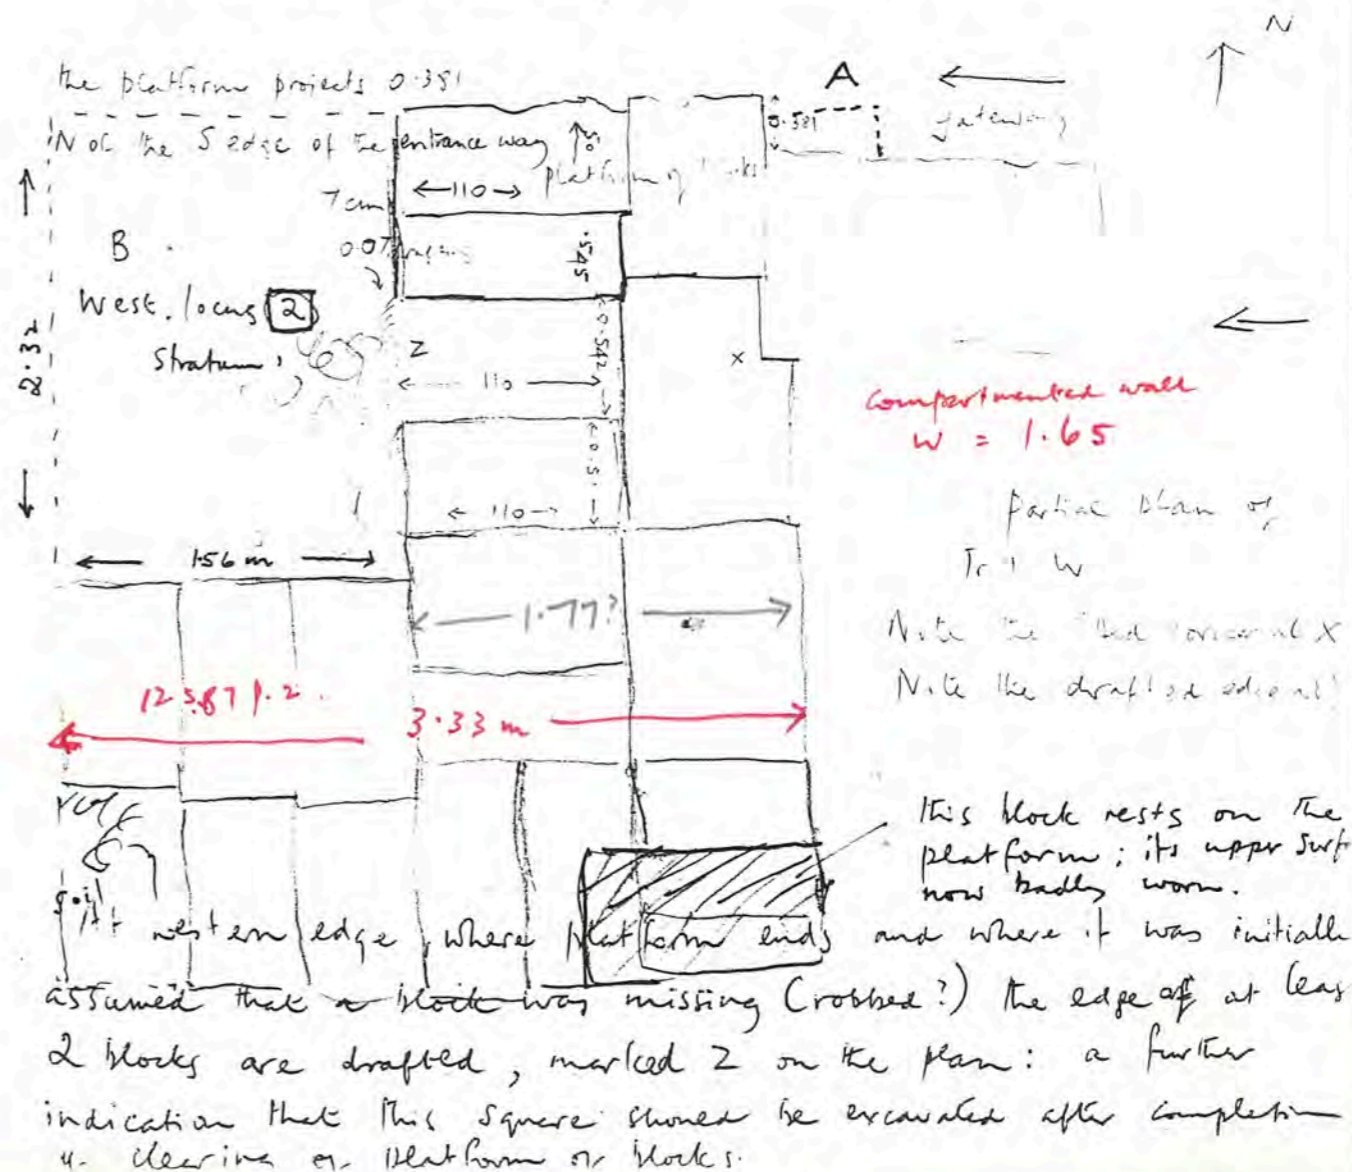 N
the platform projects 0.381
A
gateway
N of the S edge of the entrance way
0.381
.50
platform of
←110→
7cm
0.07
.545
B
West, locus 2
Stratum
2.32
Z
110
0.542
x
compartmented wall
W = 1.65
0.5
110
partial plan of
Tr 1 W
1.56 m
1.77?
Note the
x
Note the drafted edge at
12.5.87 p.2.
3.33 m
this block rests on the
platform; its upper surf
now badly worn.
soil
At western edge, where platform ends and where it was initiall
assumed that a block was missing (robbed?) the edge of at leas
2 blocks are drafted, marked Z on the plan: a further
indication that this square should be excavated after completion
clearing of platform of blocks.